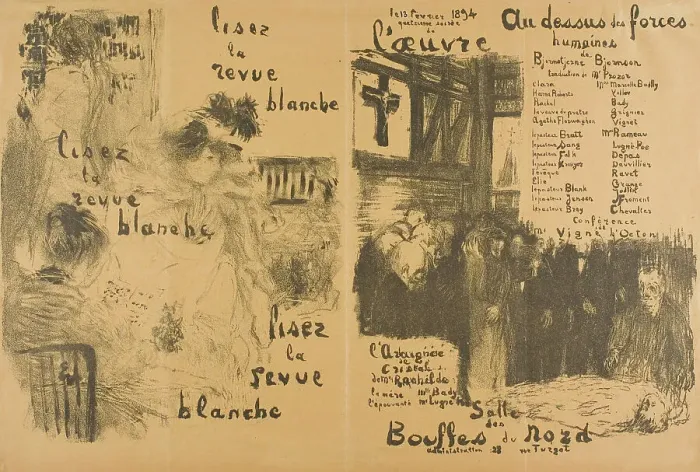 lisez
la
revue
blanche
lisez
la
revue
blanche
lisez
la
revue
blanche
le 13 fevrier 1894
quatrieme soirée
de
l'œuvre
Au dessus des forces
humaines
de
Bjornstjerne Bjornson
traduction de Mr Prozor
Clara Mme Marcelle Bailly
Hanna Roberts
Rachel Bady
la veuve du pasteur Grignier
Agathe Florvaghen Vignet
le pasteur Bratt Mr Rameau
le pasteur Sang Lugné-Poe
le pasteur Falk Depas
le pasteur Kroyer Dauvillier
l'évêque Ravet
Elie Grange
le pasteur Blank
le pasteur Jensen Froment
le pasteur Brey Chevallier
Conférence
de
Mr Vigné d'Octon
l'Araignée
de
Cristal
de Me Rachilde
la mère Mme Bady
l'épouvanté Mr Lugné Poe
Salle
des
Bouffes du Nord
administration 23 rue Turgot